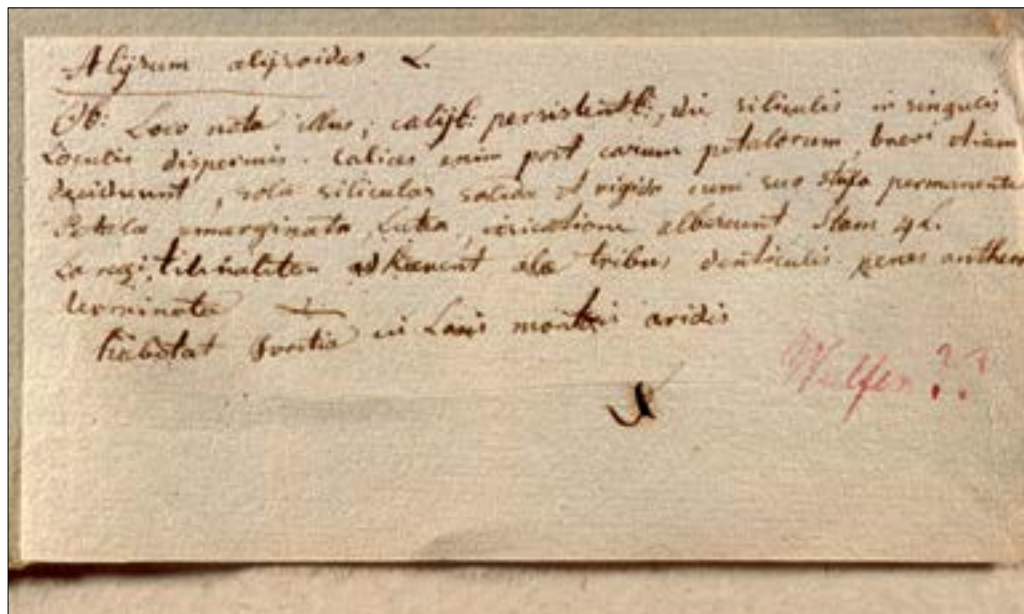 Alysum alysoides L.
Ob: Loco nota illus, calyt: persistentib:, siliculis in singulis
Loculis dispermis. Calices enim post earum petalorum, brevi etiam
decidunt, sola siliculas solida et rigida cum suo stylo permanente
Petala emarginata, Lutea, albescunt Stam 4 L.
adhaerent ala tribus denticulis penes anthera
terminata
habitat in Locis aridis
Wulfen??